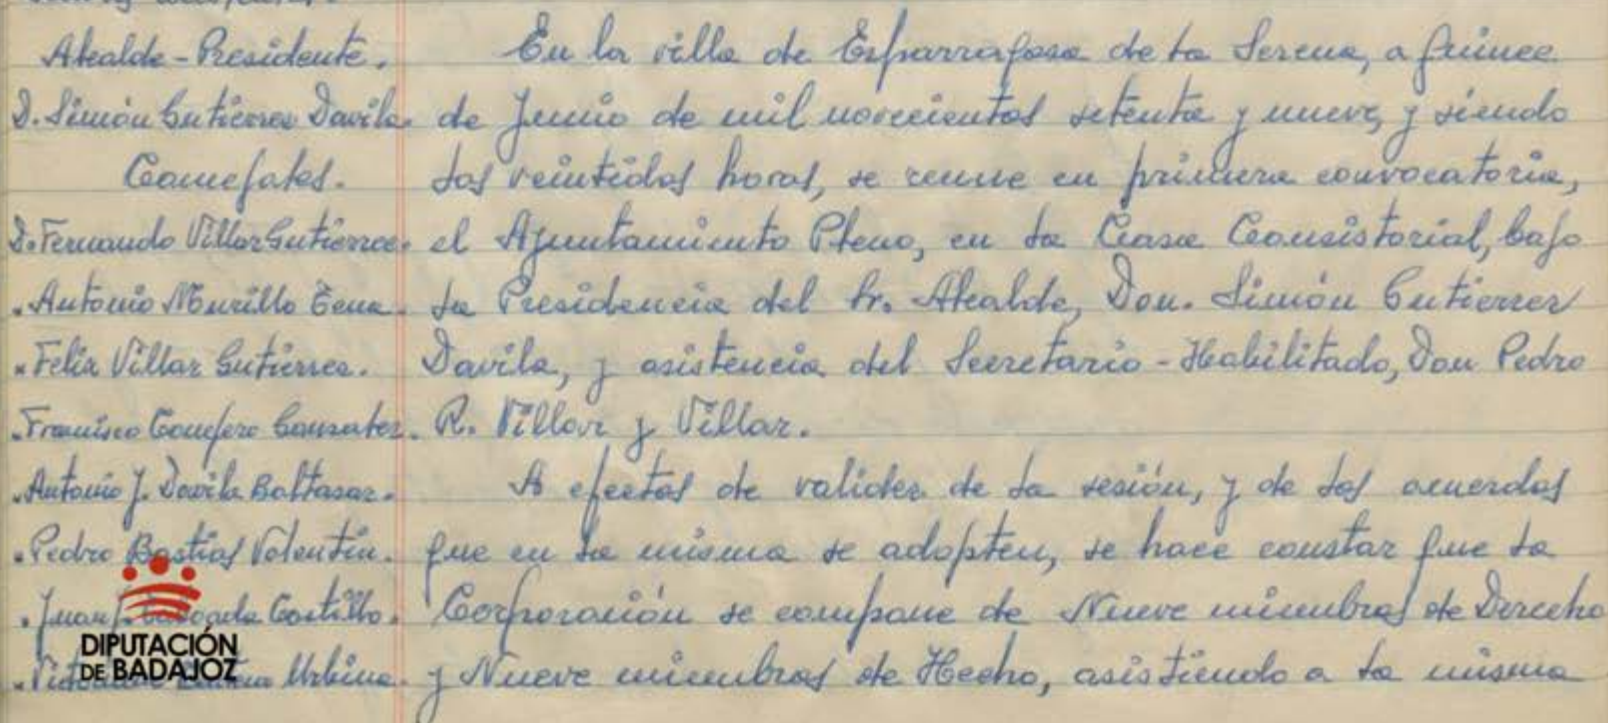 Alcalde-Presidente.
D. Simón Gutierrez Davila.
Concejales.
D. Fernando Villar Gutierrez.
" Antonio Murillo Tena.
" Felix Villar Gutierrez.
" Francisco Gonzalez.
" Antonio J. Davila Baltasar.
" Pedro Bastias Valentin.
" Juan Castillo.
Urbina.
En la villa de Esparragosa de la Serena, a quince
de Junio de mil novecientos setenta y nueve, y siendo
las veintidos horas, se reune en primera convocatoria,
el Ayuntamiento Pleno, en la Casa Consistorial, bajo
la Presidencia del Sr. Alcalde, Don. Simón Gutierrez
Davila, y asistencia del Secretario-Habilitado, Don Pedro
R. Villar y Villar.
A efectos de validez de la sesión, y de los acuerdos
que en la misma se adopten, se hace constar que la
Corporación se compone de Nueve miembros de Derecho
y Nueve miembros de Hecho, asistiendo a la misma
DIPUTACIÓN
DE BADAJOZ